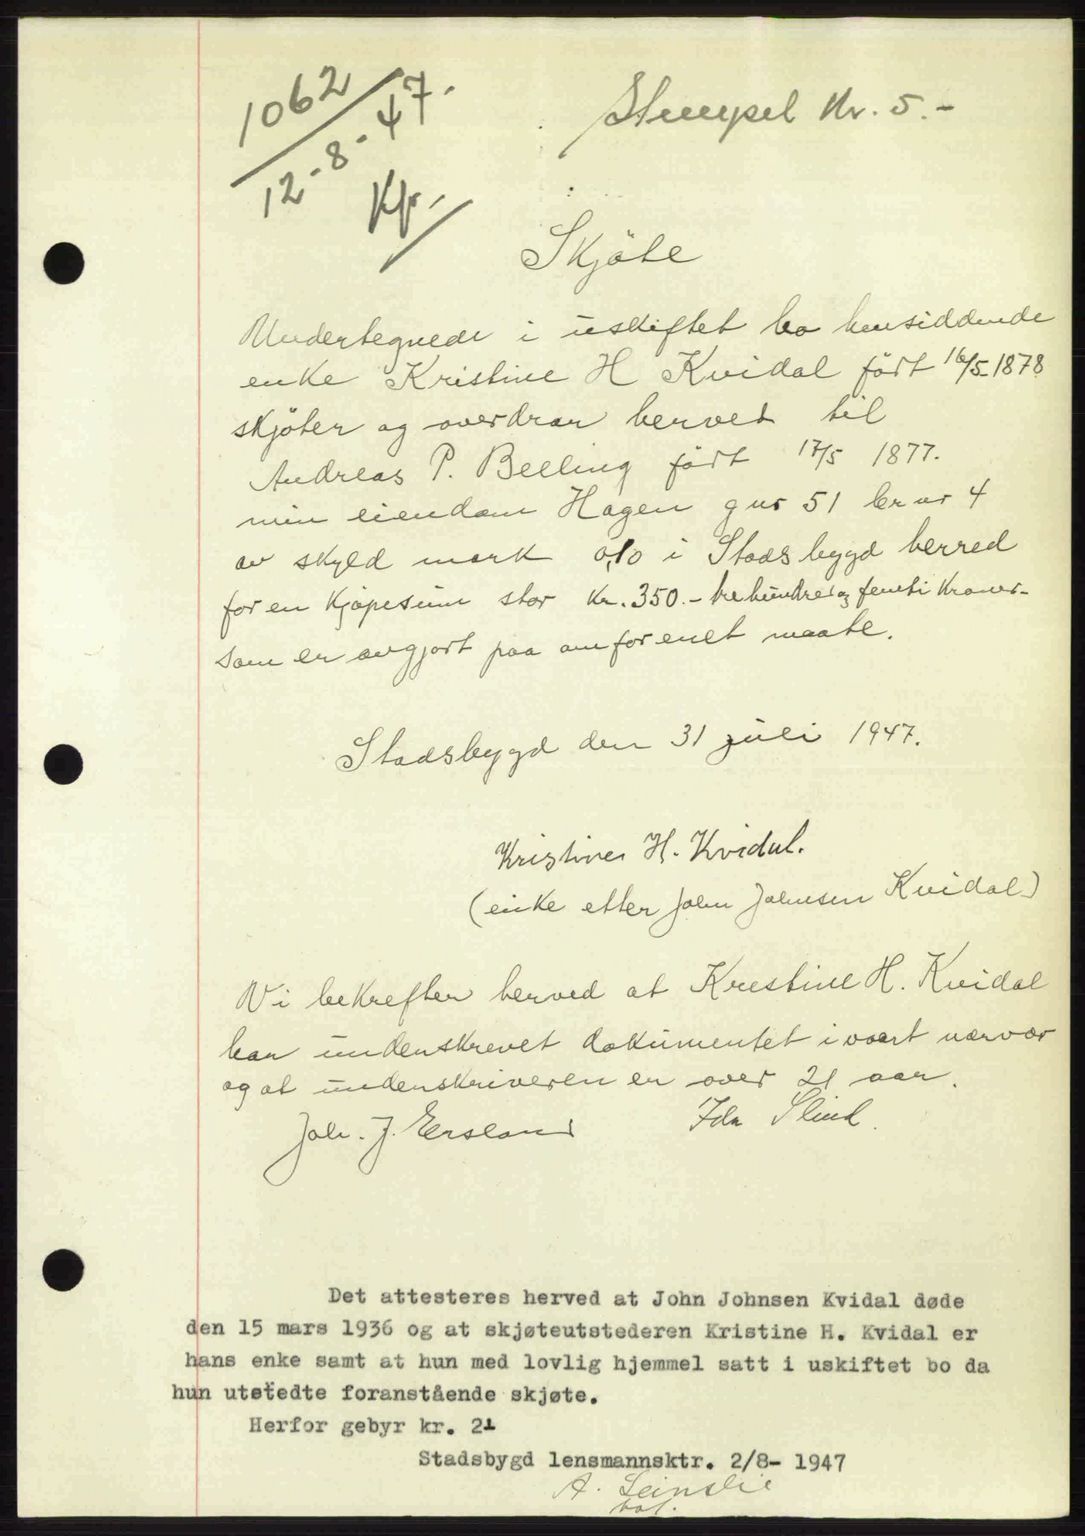 1062
12-8-47.
Kfr.
Stempel Kr. 5.-
Skjöte
Undertegnede i uskiftet bo hensiddende
enke Kristine H Kvidal født 16/5 1878
skjöter og overdrar hervet til
Andreas P. Belling født 17/5 1877.
min eiendom Hagen g nr 51 br nr 4
av skyld mark 0,10 i Stadsbygd herred
for en kjøpesum stor kr. 350.- trehundreog femti kroner-
som er avgjort paa omforenet maate.
Stadsbygd den 31 juli 1947.
Kristine H. Kvidal.
(enke etter John Johnsen Kvidal)
Vi bekrefter herved at Krestine H. Kvidal
har underskrevet dokumentet i vaart nærvær
og at underskriveren er over 21 aar.
Joh. J. Ersland Ida Slind.
Det attesteres herved at John Johnsen Kvidal døde
den 15 mars 1936 og at skjøteutstederen Kristine H. Kvidal er
hans enke samt at hun med lovlig hjemmel satt i uskiftet bo da
hun utstedte foranstående skjøte.
Herfor gebyr kr. 2-
Stadsbygd lensmannsktr. 2/8- 1947
A. Leinslie